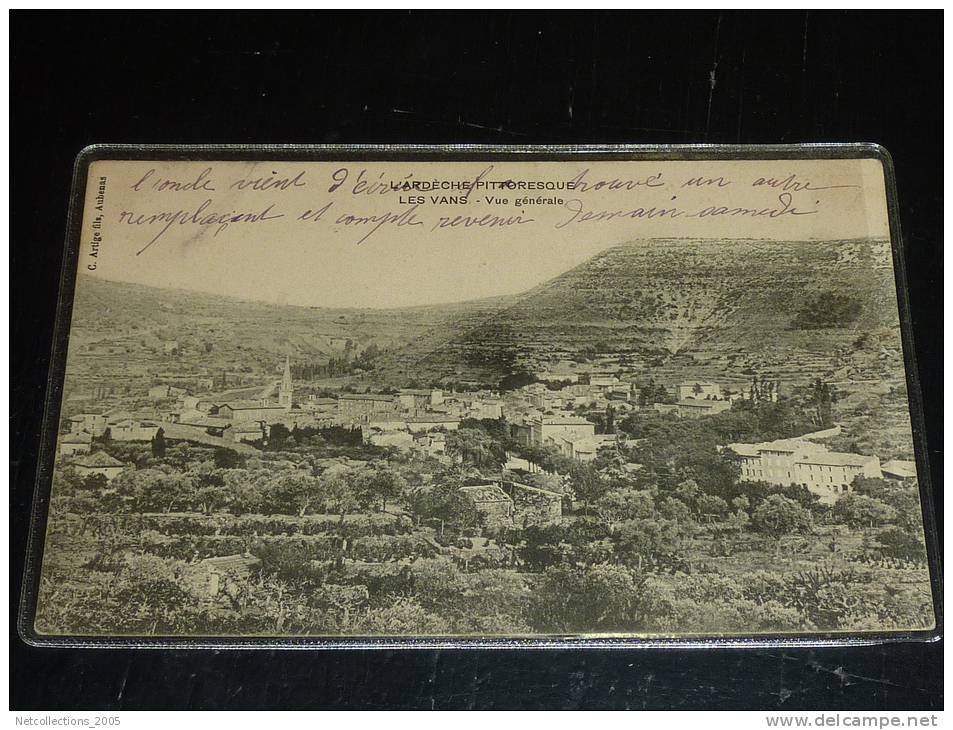 L'ARDÈCHE PITTORESQUE
LES VANS. - Vue générale
C. Artige fils, Aubenas
l'onde vient d'écrire a trouvé un autre
remplaçant et compte revenir demain samedi
Netcollections_2005
www.delcampe.net